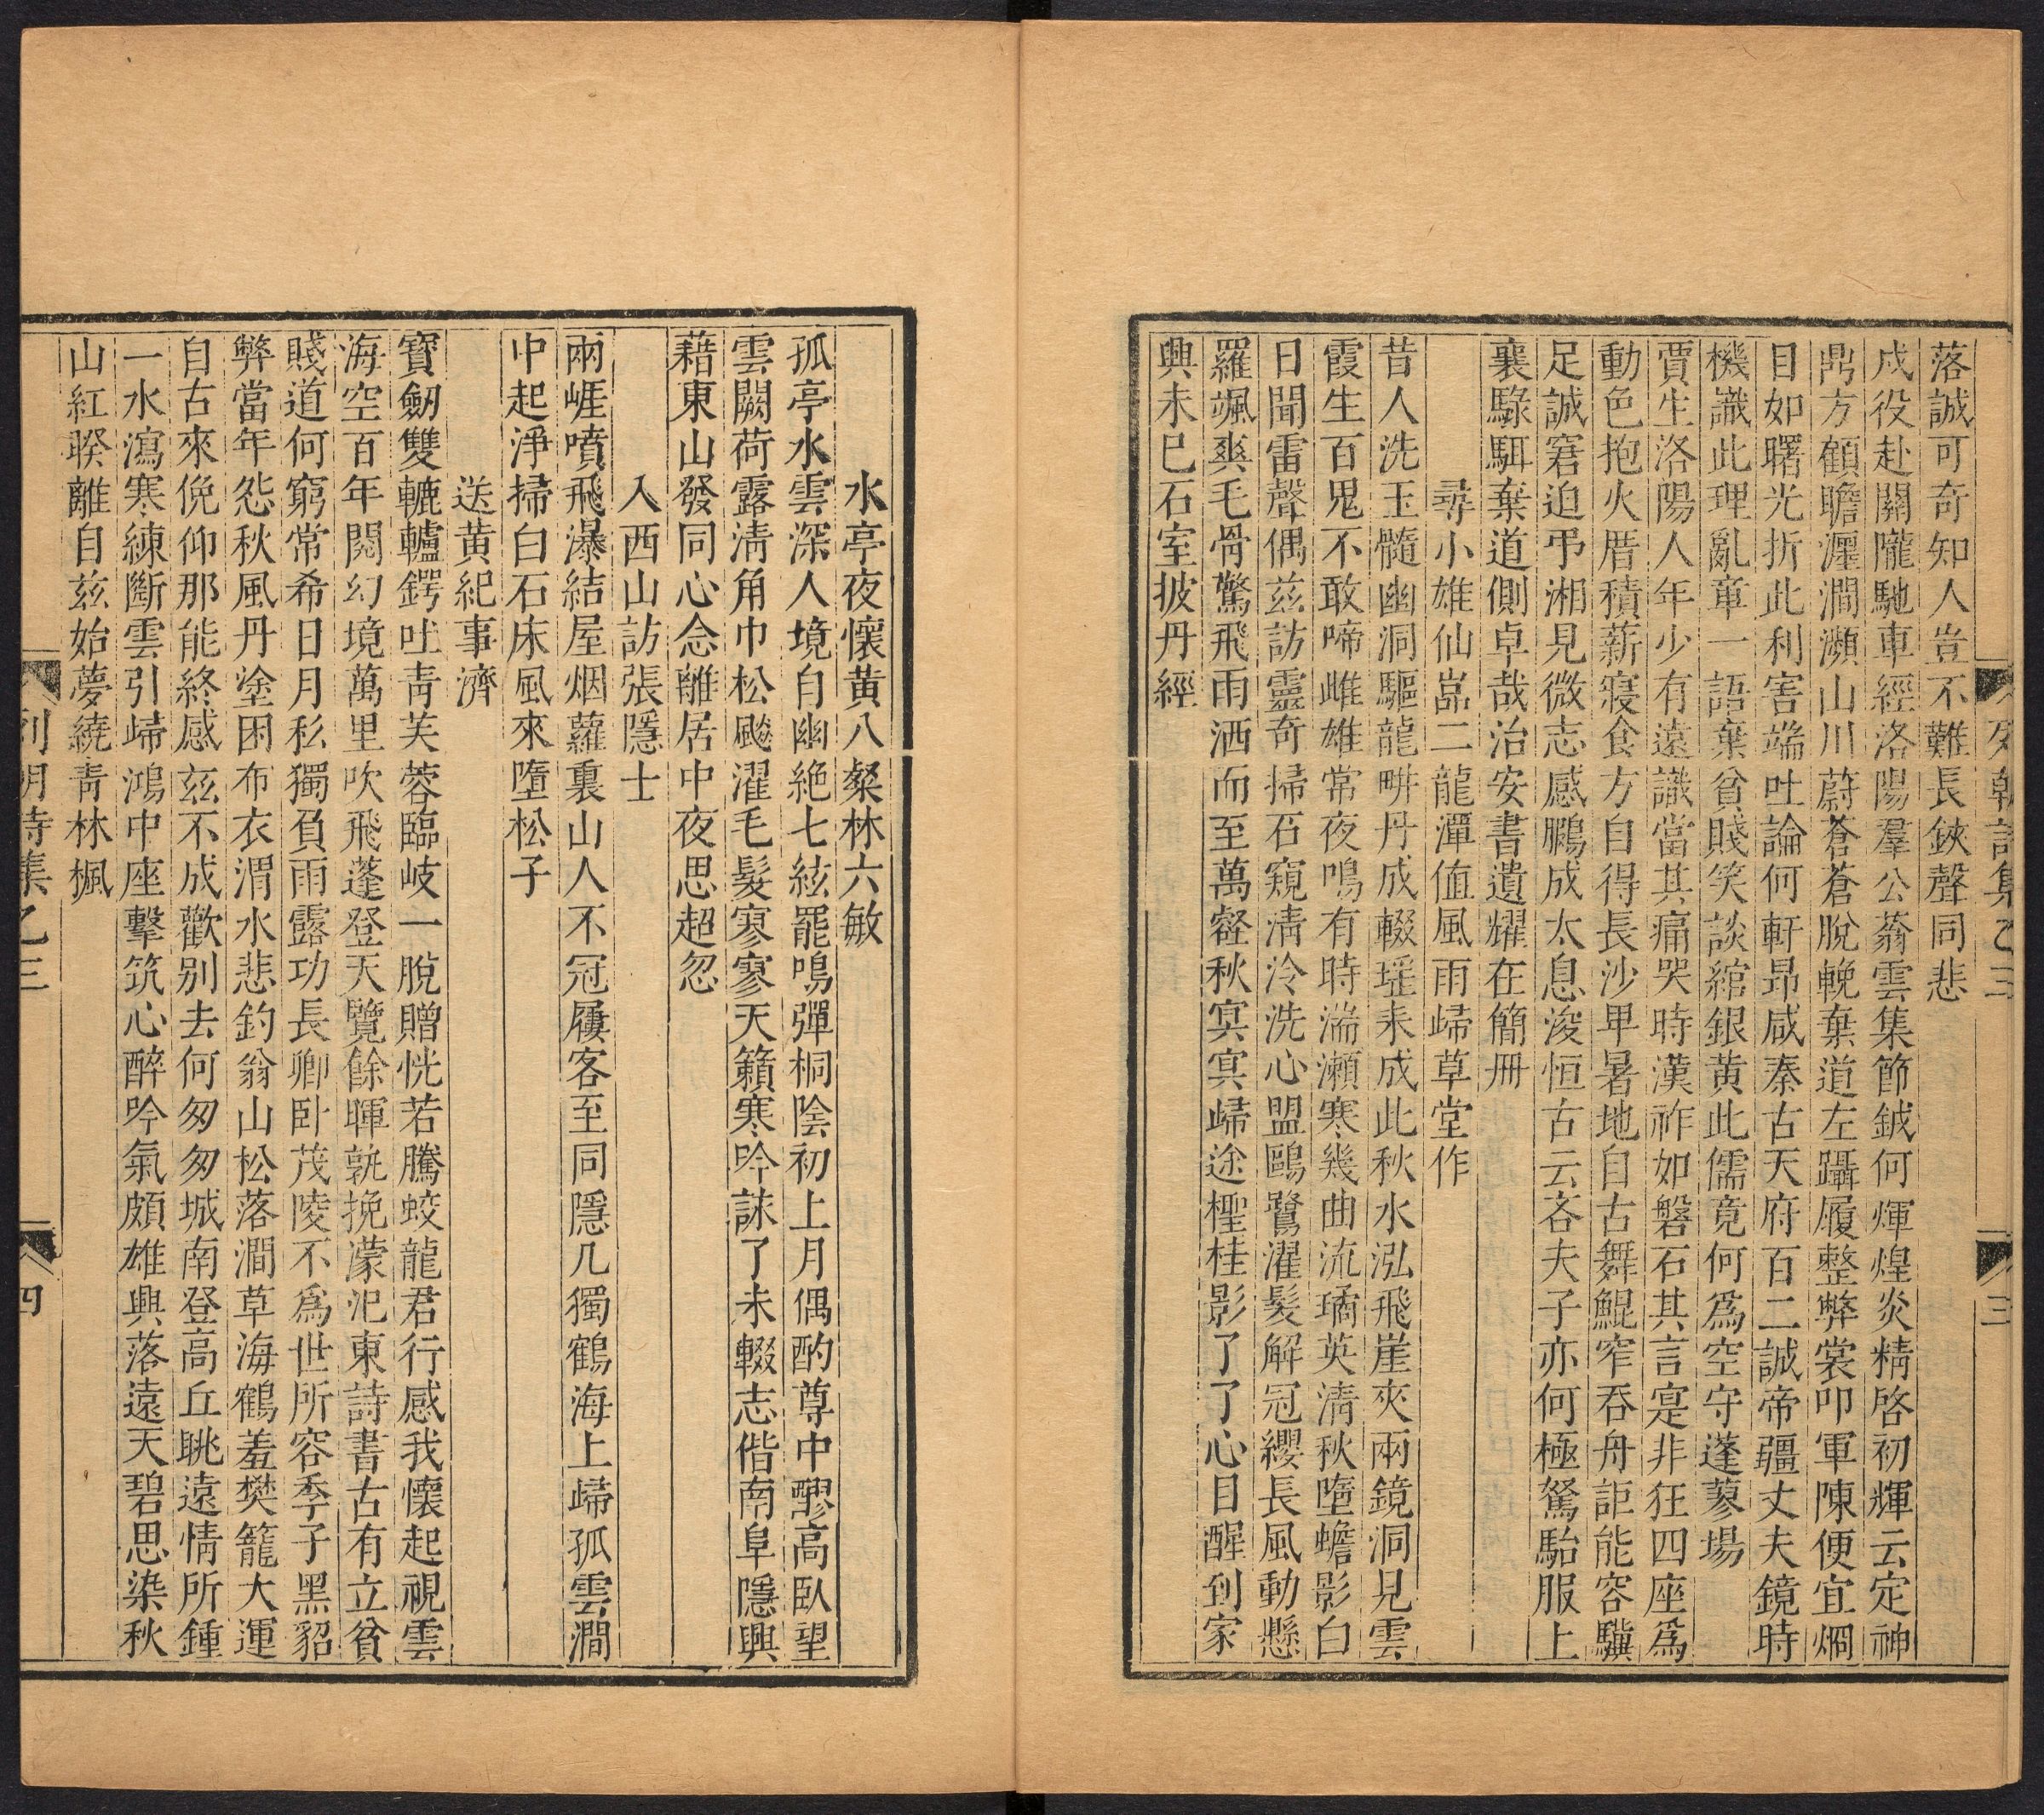 落誠可奇知人豈不難長鋏聲同悲
戍役赴關隴馳車經洛陽羣公蓊雲集節鉞何煇煌炎精啓初輝云定神
鼎方顧瞻瀍澗瀕山川蔚蒼蒼脫輓棄道左躡履整弊裳叩軍陳便宜烱
目如曙光折此利害端吐論何軒昻咸秦古天府百二誠帝疆丈夫鏡時
機識此理亂章一語棄貧賤笑談綰銀黄此儒竟何爲空守蓬蓼場
賈生洛陽人年少有遠識當其痛哭時漢祚如磐石其言寔非狂四座爲
動色抱火厝積薪寢食方自得長沙卑暑地自古舞鯤窄吞舟詎能容驥
足誠窘迫弔湘見微志感鵩成太息浚恒古云吝夫子亦何極駑駘服上
襄騄駬棄道側卓哉治安書遺耀在簡冊
尋小雄仙嵓二龍潭値風雨歸草堂作
昔人洗玉髓幽洞驅龍畊丹成輟瑶耒成此秋水泓飛崖夾兩鏡洞見雲
霞生百鬼不敢啼雌雄常夜鳴有時湍瀨寒幾曲流璚英淸秋墮蟾影白
日聞雷聲偶茲訪靈奇掃石窺淸泠洗心盟鷗鷺濯髮解冠纓長風動懸
羅颯爽毛骨驚飛雨洒而至萬壑秋冥冥歸途檉桂影了了心目醒到家
興未已石室披丹經
列朝詩集乙三
三
水亭夜懷黃八粲林六敏
孤亭水雲深人境自幽絶七絃罷鳴彈桐陰初上月偶酌尊中醪高臥望
雲闕荷露淸角巾松飈濯毛髮寥寥天籟寒吟誄了未輟志偕南阜隱興
藉東山發同心念離居中夜思超忽
入西山訪張隱士
兩崕噴飛瀑結屋烟蘿裏山人不冠屨客至同隱几獨鶴海上歸孤雲澗
中起淨掃白石床風來墮松子
送黄紀事濟
寶劒雙轆轤鍔吐靑芙蓉臨岐一脫贈恍若騰蛟龍君行感我懷起視雲
海空百年閱幻境萬里吹飛蓬登天覽餘暉孰挽濛汜東詩書古有立貧
賤道何窮常希日月私獨負雨露功長卿卧茂陵不爲世所容季子黑貂
弊當年怨秋風丹塗困布衣渭水悲釣翁山松落澗草海鶴羞樊籠大運
自古來俛仰那能終感兹不成歡别去何匆匆城南登高丘眺遠情所鍾
一水瀉寒練斷雲引歸鴻中座擊筑心醉吟氣頗雄興落遠天碧思染秋
山紅睽離自兹始夢繞靑林楓
列朝詩集乙三
四